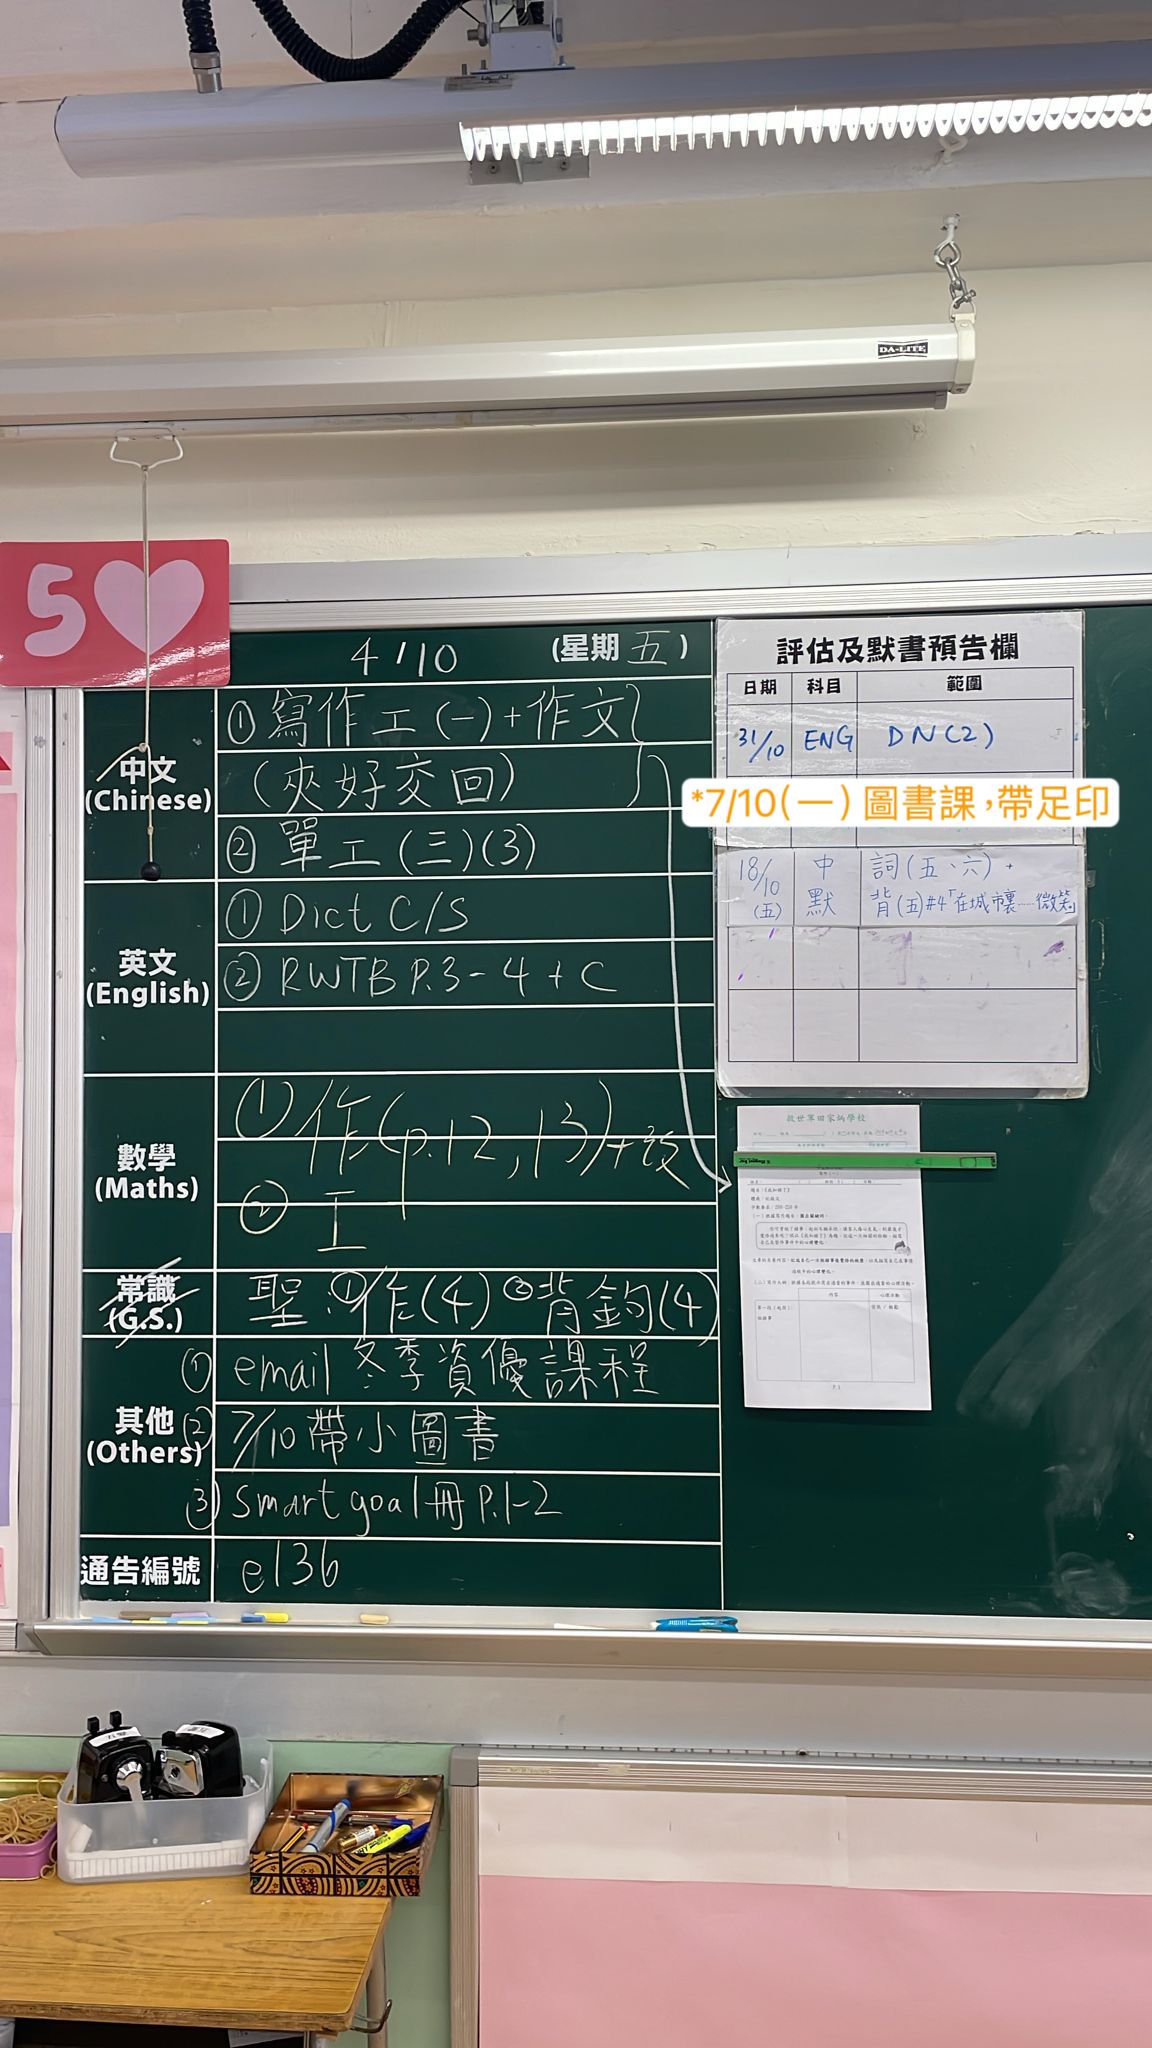 DA-LITE
5
4/10 (星期五)
中文
(Chinese)
①寫作工(一)+作文
(夾好交回)
②單工(三)(3)
英文
(English)
①Dict C/S
②RWTB P.3-4+C
數學
(Maths)
①作(p.12,13)+改
②工
常識
(G.S.)
聖:①作(4)②背鈞(4)
其他
(Others)
①email 冬季資優課程
②7/10帶小圖書
③Smart goal冊P.1-2
通告編號
e136
評估及默書預告欄
日期 科目 範圍
31/10 ENG DN(2)
*7/10(一) 圖書課,帶足印
18/10(五) 中默 詞(五、六)+
背(五)#4「在城市裏……微笑」
救世軍田家炳學校
內容 心理活動
P.1